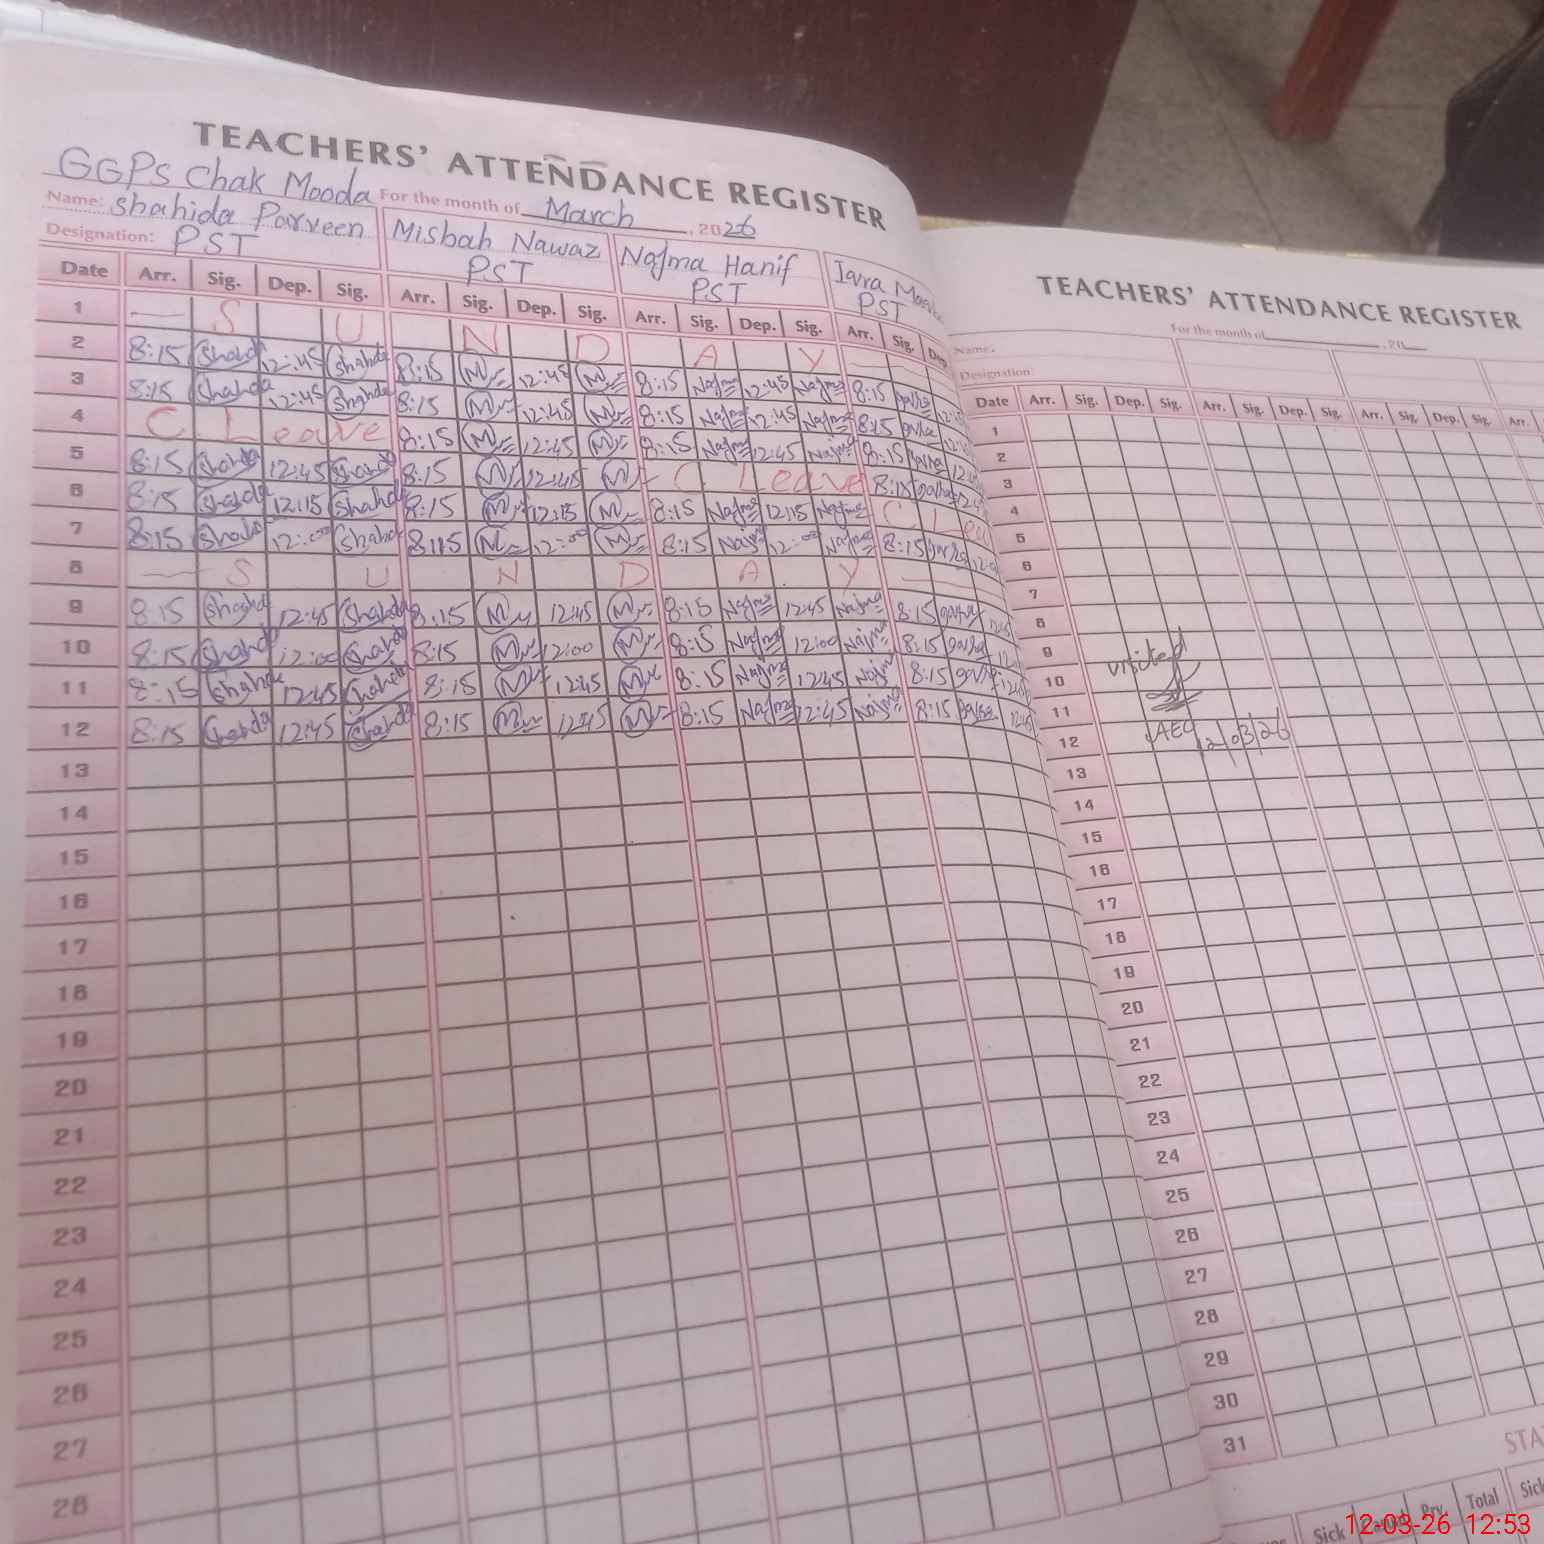 TEACHERS' ATTENDANCE REGISTER
GGPS Chak Mooda For the month of March, 2026
Name: Shahida Parveen Misbah Nawaz Najma Hanif Iqra
Designation: PST PST PST PST
Date Arr. Sig. Dep. Sig. Arr. Sig. Dep. Sig. Arr. Sig. Dep. Sig. Arr. Sig. Dep.
1 — S U N D A Y
2 8:15 Shahida 12:45 Shahida 8:15 12:45 8:15 Najma 12:45 Najma 8:15
3 8:15 Shahida 12:45 Shahida 8:15 12:45 8:15 Najma 12:45 Najma 8:15
4 C Leave 8:15 12:45 8:15 Najma 12:45 Najma 8:15
5 8:15 Shahida 12:45 Shahida 8:15 12:45 C Leave 8:15
6 8:15 Shahida 12:15 Shahida 8:15 12:15 8:15 Najma 12:15 Najma C Lea
7 8:15 Shahida 12:00 Shahida 8:15 12:00 8:15 Najma 12:00 Najma 8:15
8 — S U N D A Y —
9 8:15 Shahida 12:45 Shahida 8:15 12:45 8:15 Najma 12:45 Najma 8:15
10 8:15 Shahida 12:00 Shahida 8:15 12:00 8:15 Najma 12:00 Najma 8:15
11 8:15 Shahida 12:45 Shahida 8:15 12:45 8:15 Najma 12:45 Najma 8:15
12 8:15 Shahida 12:45 Shahida 8:15 12:45 8:15 Najma 12:45 Najma 8:15
13
14
15
16
17
18
19
20
21
22
23
24
25
26
27
28
TEACHERS' ATTENDANCE REGISTER
For the month of , 20
Name:
Designation:
Date Arr. Sig. Dep. Sig. Arr. Sig. Dep. Sig. Arr. Sig. Dep. Sig. Arr.
1
2
3
4
5
6
7
8
9 visited
10
11
12 AEO 12/03/26
13
14
15
16
17
18
19
20
21
22
23
24
25
26
27
28
29
30
31
STA
Sick Prv. Total Sick
12-03-26 12:53